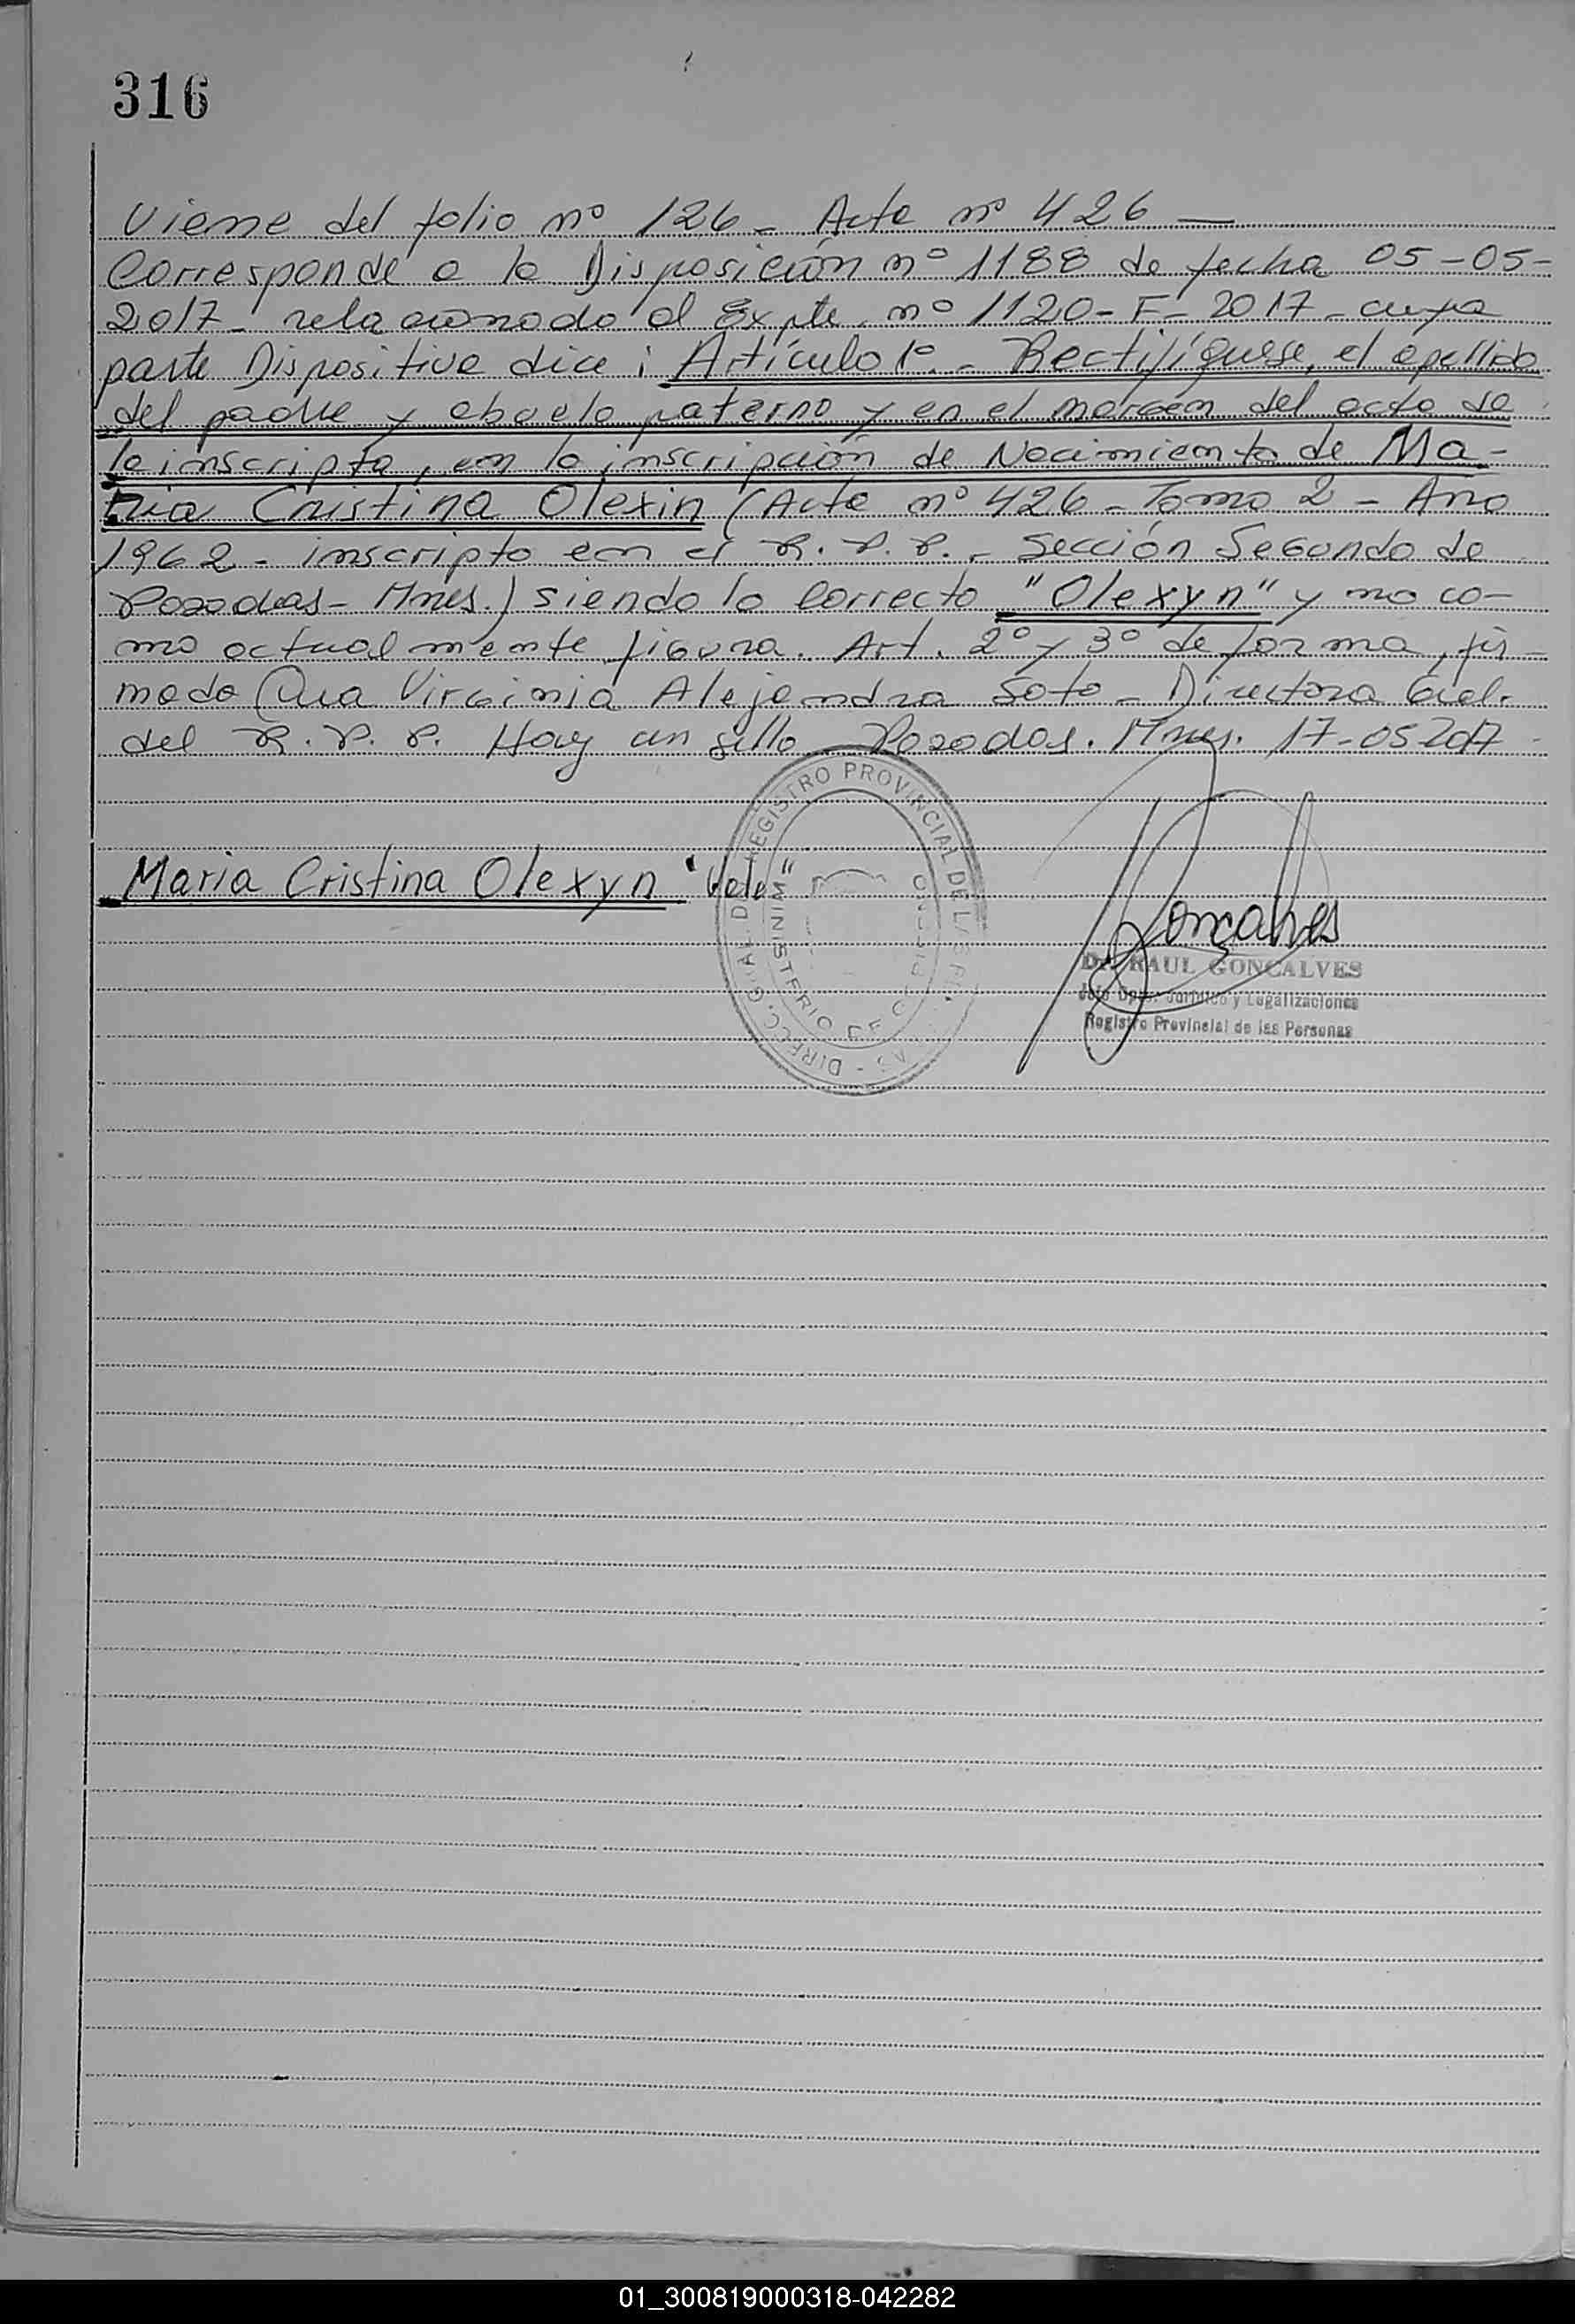 316
Viene del folio nº 126 - Acta nº 426 —
Corresponde a la Disposición nº 1188 de fecha 05-05-
2017- relacionado al Expte. nº 1120-F-2017- cuya
parte Dispositiva dice: Artículo 1º.- Rectifíquese, el apellido
del padre y abuelo paterno y en el margen del acta de
la inscripta, en la inscripción de Nacimiento de Ma-
ria Cristina Olexin (Acta nº 426 - Tomo 2 - Año
1962 - inscripto en el R.P.P. - Sección Segunda de
Posadas - Mnes.) siendo lo correcto "Olexyn" y no co-
mo actualmente figura. Art. 2º y 3º de forma, fir-
mado Virginia Alejandra Soto - Directora Gral.
del R.P.P. Hay un sello Posadas. Mnes. 17-05-2017
Maria Cristina Olexyn "Vale"
DIRECC. GRAL. DEL REGISTRO PROVINCIAL DE LAS
MINISTERIO DE GOBIERNO
Goncalves
Dr. RAUL GONCALVES
Jefe Dpto. Jurídico y Legalizaciones
Registro Provincial de las Personas
01_300819000318-042282